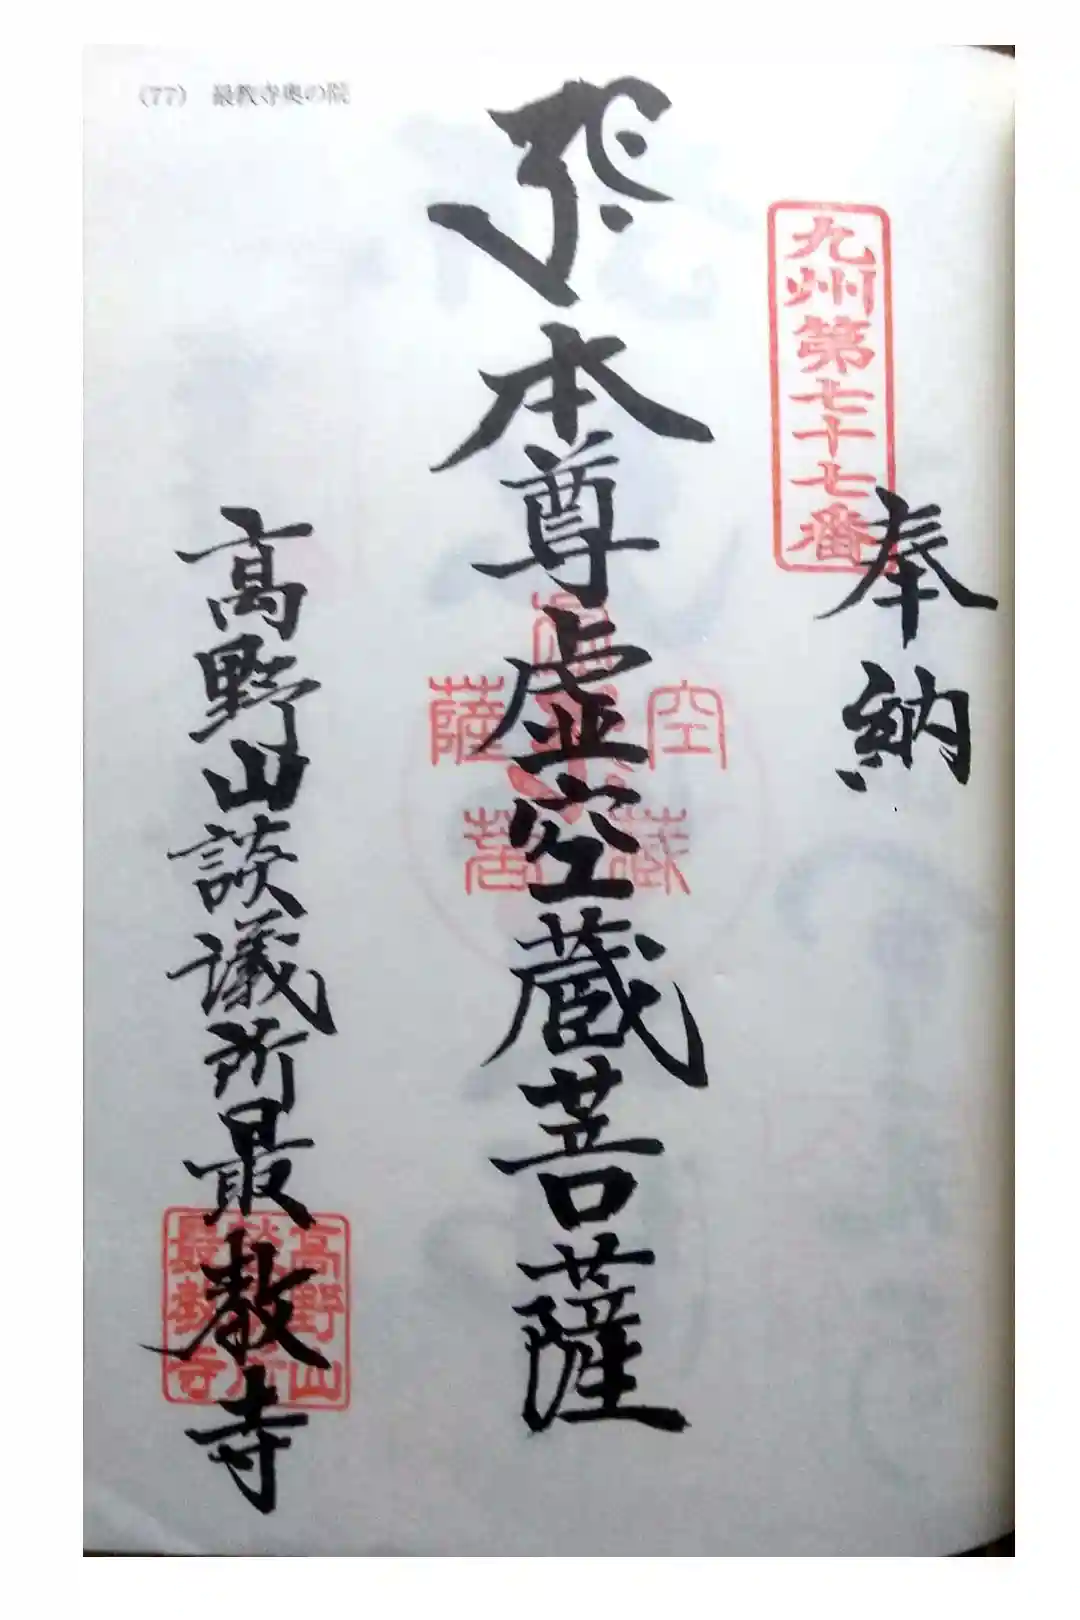 (77) 最教寺奥の院
九州第七十七番
奉納
本尊虚空蔵菩薩
虚空蔵菩薩
高野山談議所最教寺
高野山談議所最教寺